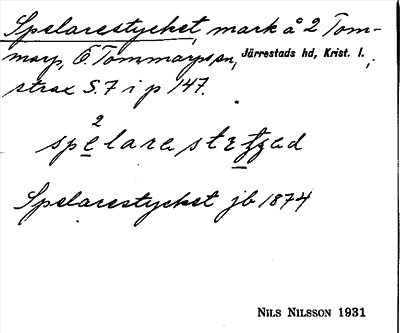 Spelarestycket, mark å 2 Tom-
marp, Ö. Tommarps sn, Järrestads hd, Krist. l.;
strax S. 7 i p 147.
2
spelarest
Spelarestycket jb 1874
NILS NILSSON 1931